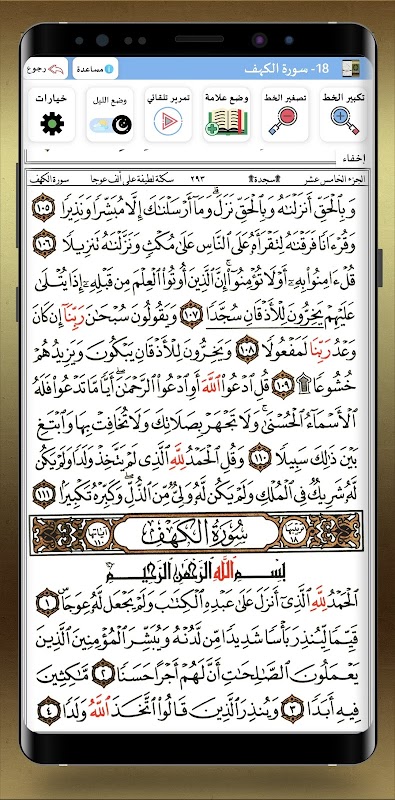 18- سورة الكهف
مساعدة
رجوع
تكبير الخط
تصغير الخط
وضع علامة
تمرير تلقائي
وضع الليل
خيارات
إخفاء
الجزء الخامس عشر
۩سجدة۩
٢٩٣
سكتة لطيفة على ألف عوجا
سورة الكهف
وَبِالْحَقِّ أَنزَلْنَاهُ وَبِالْحَقِّ نَزَلَ ۗ وَمَا أَرْسَلْنَاكَ إِلَّا مُبَشِّرًا وَنَذِيرًا ١٠٥
وَقُرْءَانًا فَرَقْنَاهُ لِتَقْرَأَهُ عَلَى النَّاسِ عَلَىٰ مُكْثٍ وَنَزَّلْنَاهُ تَنزِيلًا ١٠٦
قُلْ ءَامِنُوا بِهِ أَوْ لَا تُؤْمِنُوا ۚ إِنَّ الَّذِينَ أُوتُوا الْعِلْمَ مِن قَبْلِهِ إِذَا يُتْلَىٰ
عَلَيْهِمْ يَخِرُّونَ لِلْأَذْقَانِ سُجَّدًا ١٠٧ وَيَقُولُونَ سُبْحَانَ رَبِّنَا إِن كَانَ
وَعْدُ رَبِّنَا لَمَفْعُولًا ١٠٨ وَيَخِرُّونَ لِلْأَذْقَانِ يَبْكُونَ وَيَزِيدُهُمْ
خُشُوعًا ۩ ١٠٩ قُلِ ادْعُوا اللَّهَ أَوِ ادْعُوا الرَّحْمَٰنَ ۖ أَيًّا مَّا تَدْعُوا فَلَهُ
الْأَسْمَاءُ الْحُسْنَىٰ ۚ وَلَا تَجْهَرْ بِصَلَاتِكَ وَلَا تُخَافِتْ بِهَا وَابْتَغِ
بَيْنَ ذَٰلِكَ سَبِيلًا ١١٠ وَقُلِ الْحَمْدُ لِلَّهِ الَّذِي لَمْ يَتَّخِذْ وَلَدًا وَلَمْ يَكُن
لَّهُ شَرِيكٌ فِي الْمُلْكِ وَلَمْ يَكُن لَّهُ وَلِيٌّ مِّنَ الذُّلِّ ۖ وَكَبِّرْهُ تَكْبِيرًا ١١١
ترتيبها ١٨
سُورَةُ الْكَهْفِ
آياتها ١١٠
بِسْمِ اللَّهِ الرَّحْمَٰنِ الرَّحِيمِ
الْحَمْدُ لِلَّهِ الَّذِي أَنزَلَ عَلَىٰ عَبْدِهِ الْكِتَابَ وَلَمْ يَجْعَل لَّهُ عِوَجًا ۜ ١
قَيِّمًا لِّيُنذِرَ بَأْسًا شَدِيدًا مِّن لَّدُنْهُ وَيُبَشِّرَ الْمُؤْمِنِينَ الَّذِينَ
يَعْمَلُونَ الصَّالِحَاتِ أَنَّ لَهُمْ أَجْرًا حَسَنًا ٢ مَّاكِثِينَ
فِيهِ أَبَدًا ٣ وَيُنذِرَ الَّذِينَ قَالُوا اتَّخَذَ اللَّهُ وَلَدًا ٤